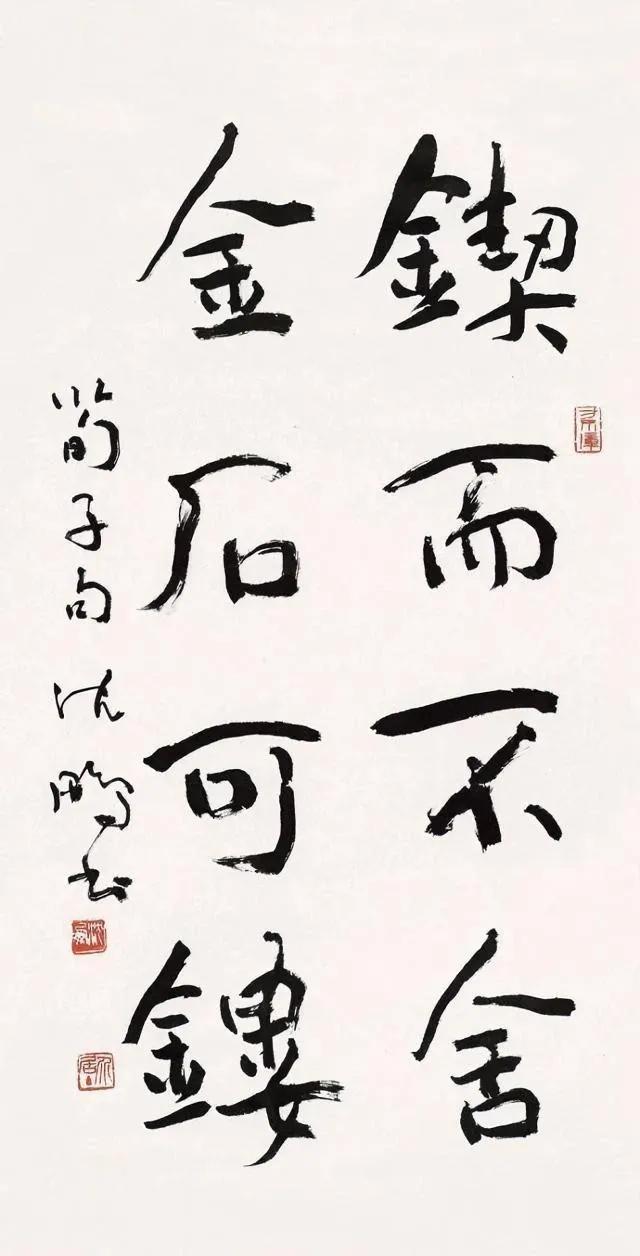 鍥而不舍
金石可鏤
荀子句 沈鹏书